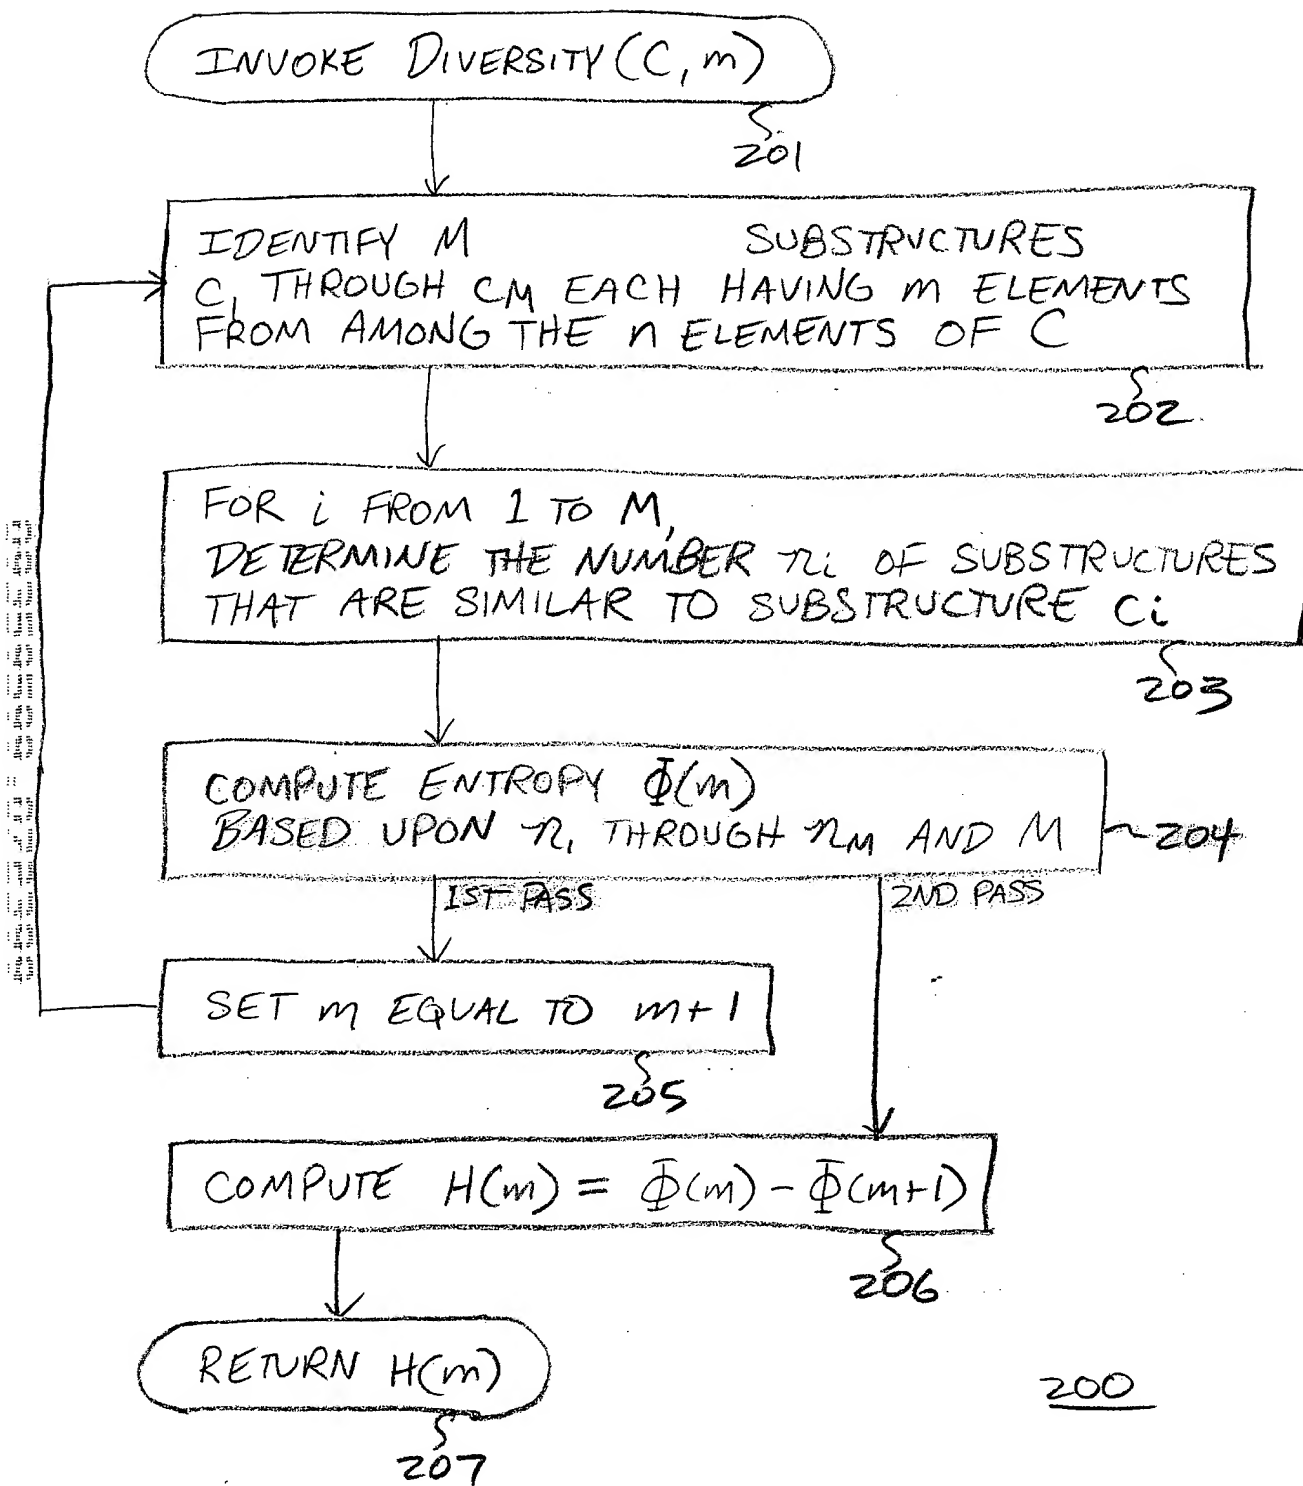 INVOKE DIVERSITY (C, m)
201
IDENTIFY M SUBSTRUCTURES
C1 THROUGH CM EACH HAVING m ELEMENTS
FROM AMONG THE n ELEMENTS OF C
202
FOR i FROM 1 TO M,
DETERMINE THE NUMBER ni OF SUBSTRUCTURES
THAT ARE SIMILAR TO SUBSTRUCTURE Ci
203
COMPUTE ENTROPY Φ(m)
BASED UPON n1 THROUGH nM AND M
204
1ST PASS
2ND PASS
SET m EQUAL TO m+1
205
COMPUTE H(m) = Φ(m) - Φ(m+1)
206
RETURN H(m)
207
200